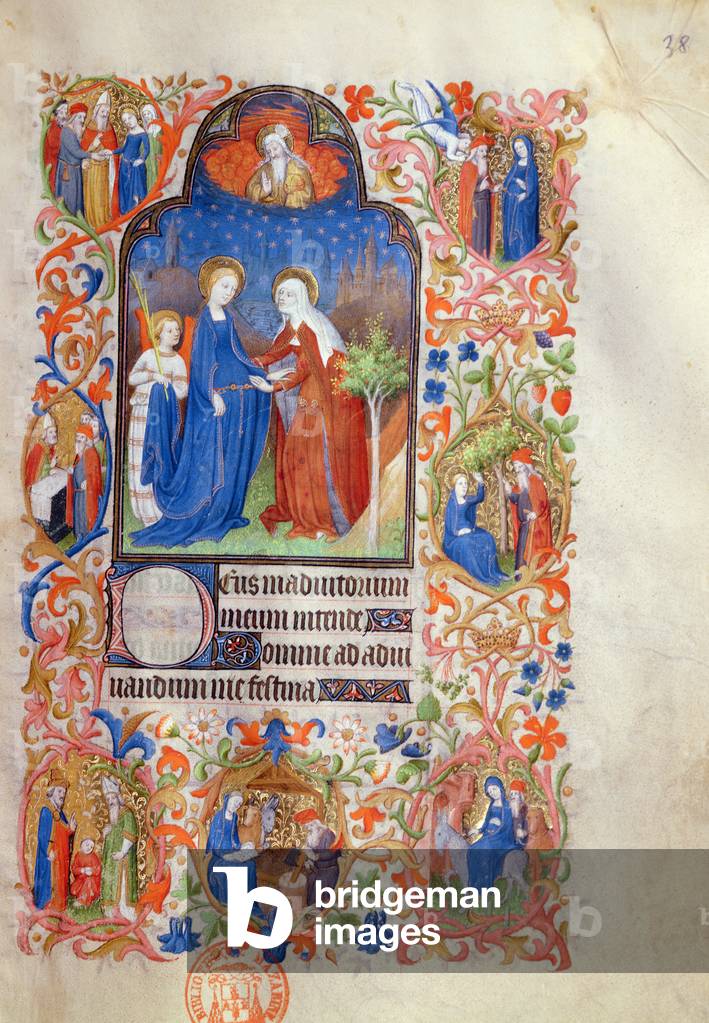 38
Deus in adiutorium
meum intende
Domine ad adiu
uandum me festina
b bridgeman
images